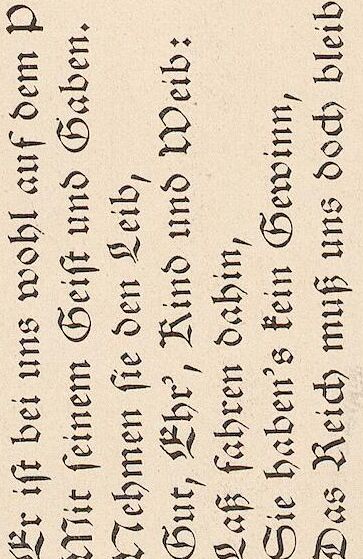 Er ist bei uns wohl auf dem P
Mit seinem Geist und Gaben.
Nehmen sie den Leib,
Gut, Ehr', Kind und Weib:
Laß fahren dahin,
Sie haben's kein Gewinn,
Das Reich muß uns doch bleib